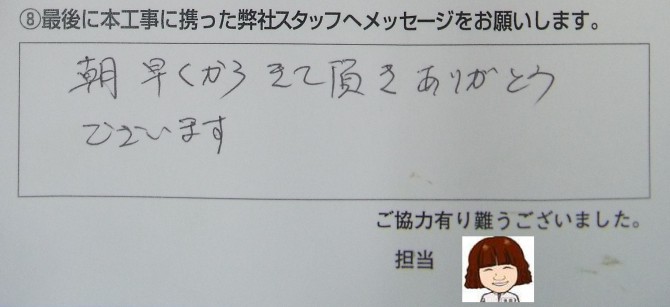 ⑧最後に本工事に携った弊社スタッフへメッセージをお願いします。
朝早くからきて頂きありがとう
ございます
ご協力有り難うございました。
担当